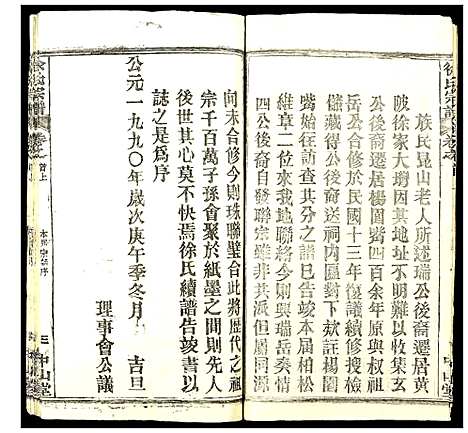 徐氏宗譜
族民崑山老人所述瑞公後裔遷居黃
陂徐家大塆因其地址不明難以收集玄
公後裔遷居楊園嘴四百余年原與瑞
岳公合修於民國十三年復議續修搜檢
儲藏得公後裔送祠內匾對下欵註楊園
嘴始往訪查其分譜已告竣本届柏松
維章二位來我處自發聯宗雖非瑞岳
四公後裔今則興瑞岳共派但屬同源
向未合修今則珠聯璧合此將歷代之祖
宗千百萬子孫會聚於紙墨之間傳流
後世其心莫不快焉徐氏續譜告竣書以
誌之是爲序
公元一九九〇年歲次庚午季冬月 吉旦
理事會公議
徐氏宗譜
卷首上
三
中山堂